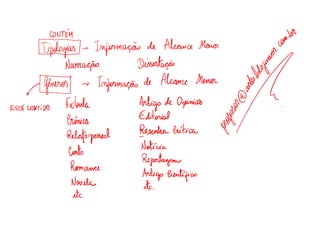 CONTÉM
Tipologias → Informação de Alcance Maior
Narração Dissertação
Gêneros → Informação de Alcance Menor
ESTÁ CONTIDO
Fábula Artigo de Opinião
Crônica Editorial
Relato pessoal Resenha Crítica
Conto Notícia
Romance Reportagem
Novela Artigo Científico
etc. etc.